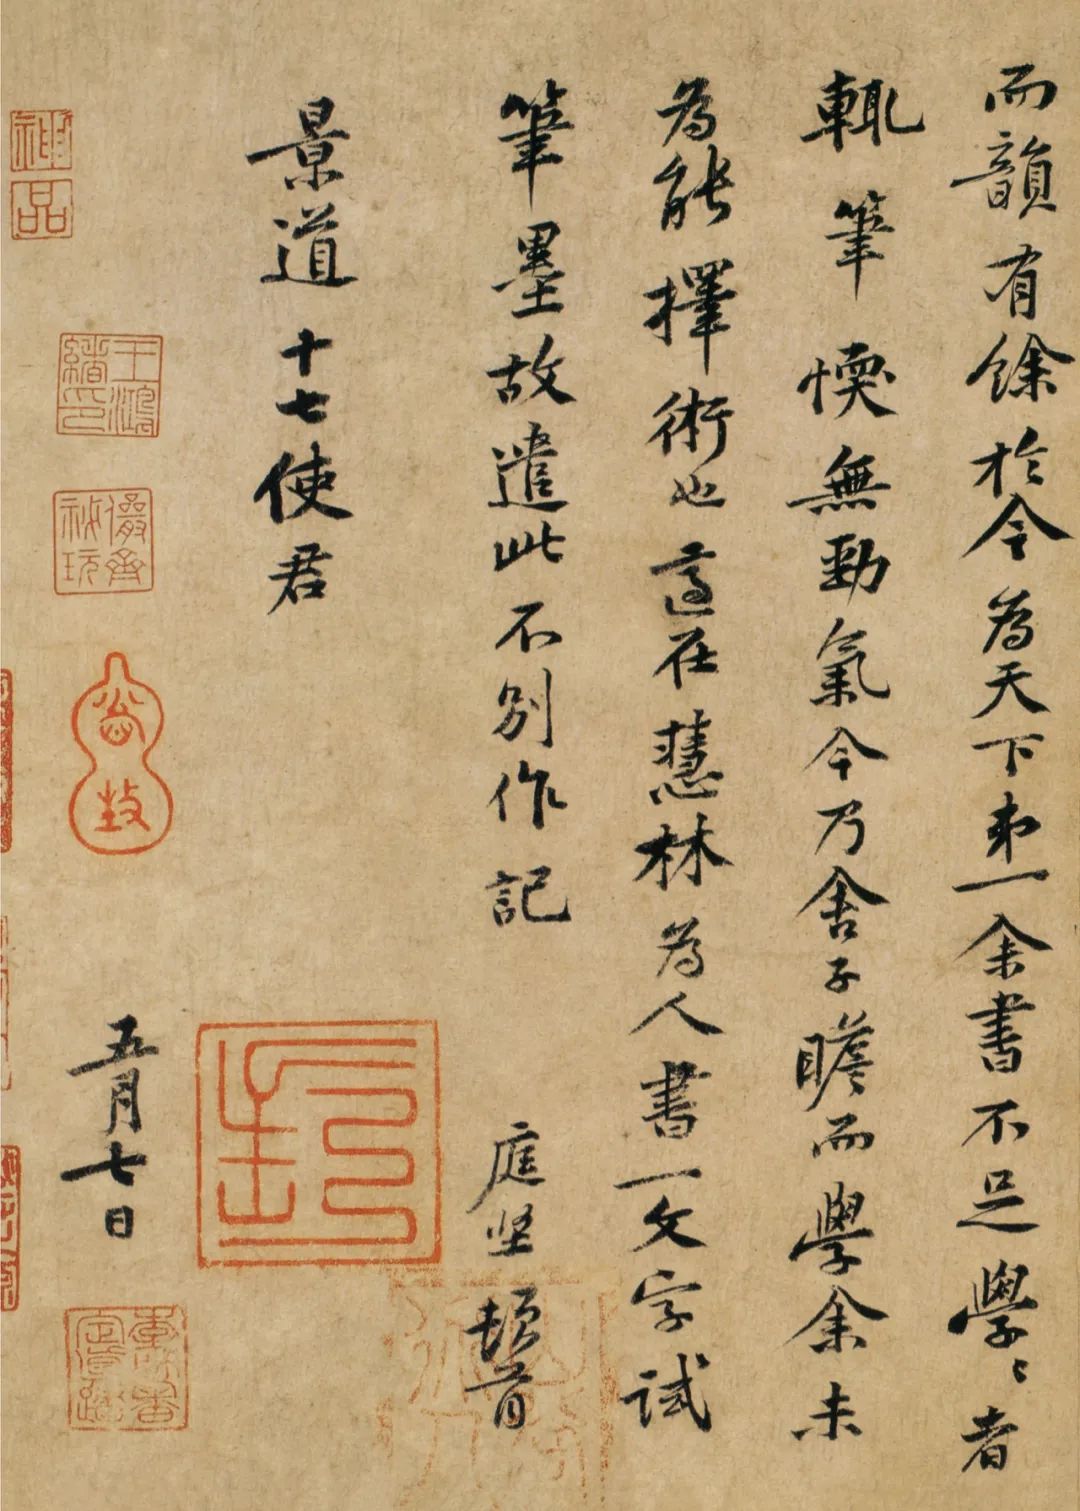 而韻有餘於今為天下第一余書不足學〻者
輒筆愞無勁氣今乃舍子瞻而學余未
為能擇術也適在慧林為人書一文字試
筆墨故遣此不別作記
庭堅頓首
景道十七使君
五月七日
神品
王鴻緒印
儼齋秘玩